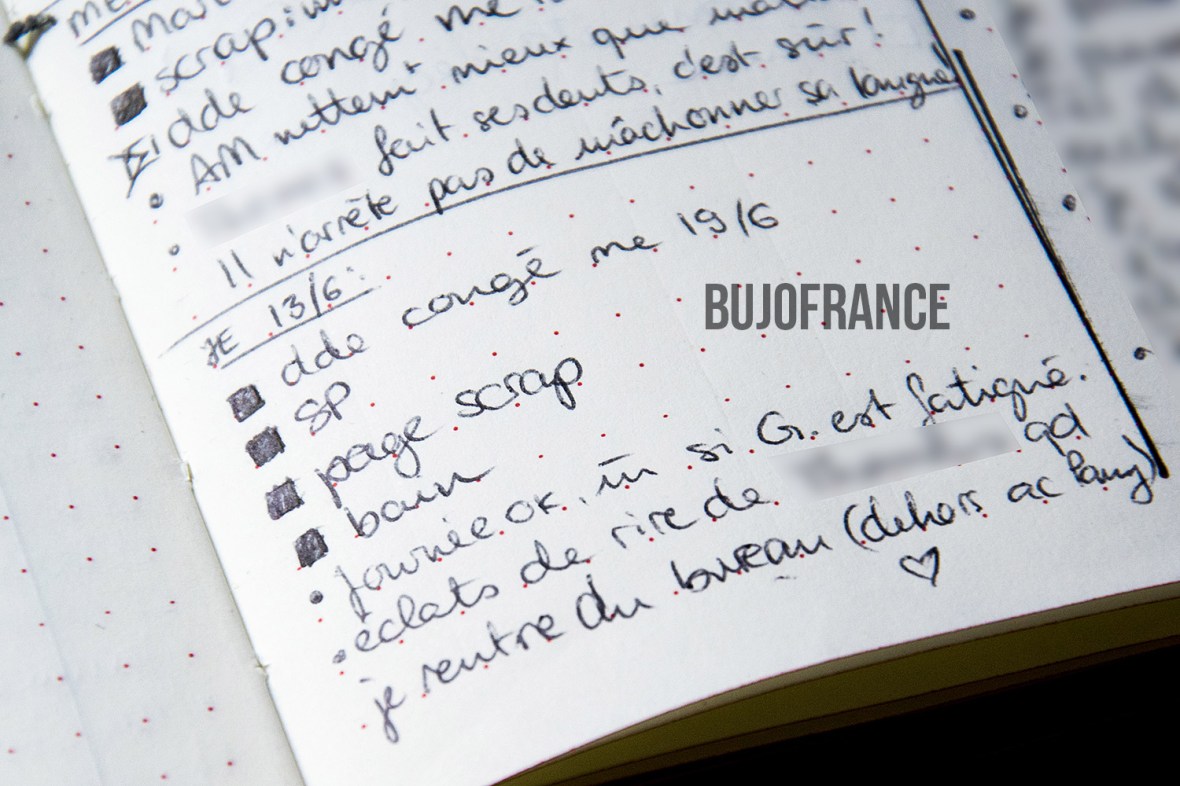 scrap:
dde congé me
AM nettemt mieux que
fait ses dents, c'est sûr!
Il n'arrête pas de mâchonner sa langue
JE 13/6:
dde congé me 19/6
SP
page scrap
BUJOFRANCE
bain
journée ok. m̄ si G. est fatigué.
éclats de rire de qd
je rentre du bureau (dehors ac